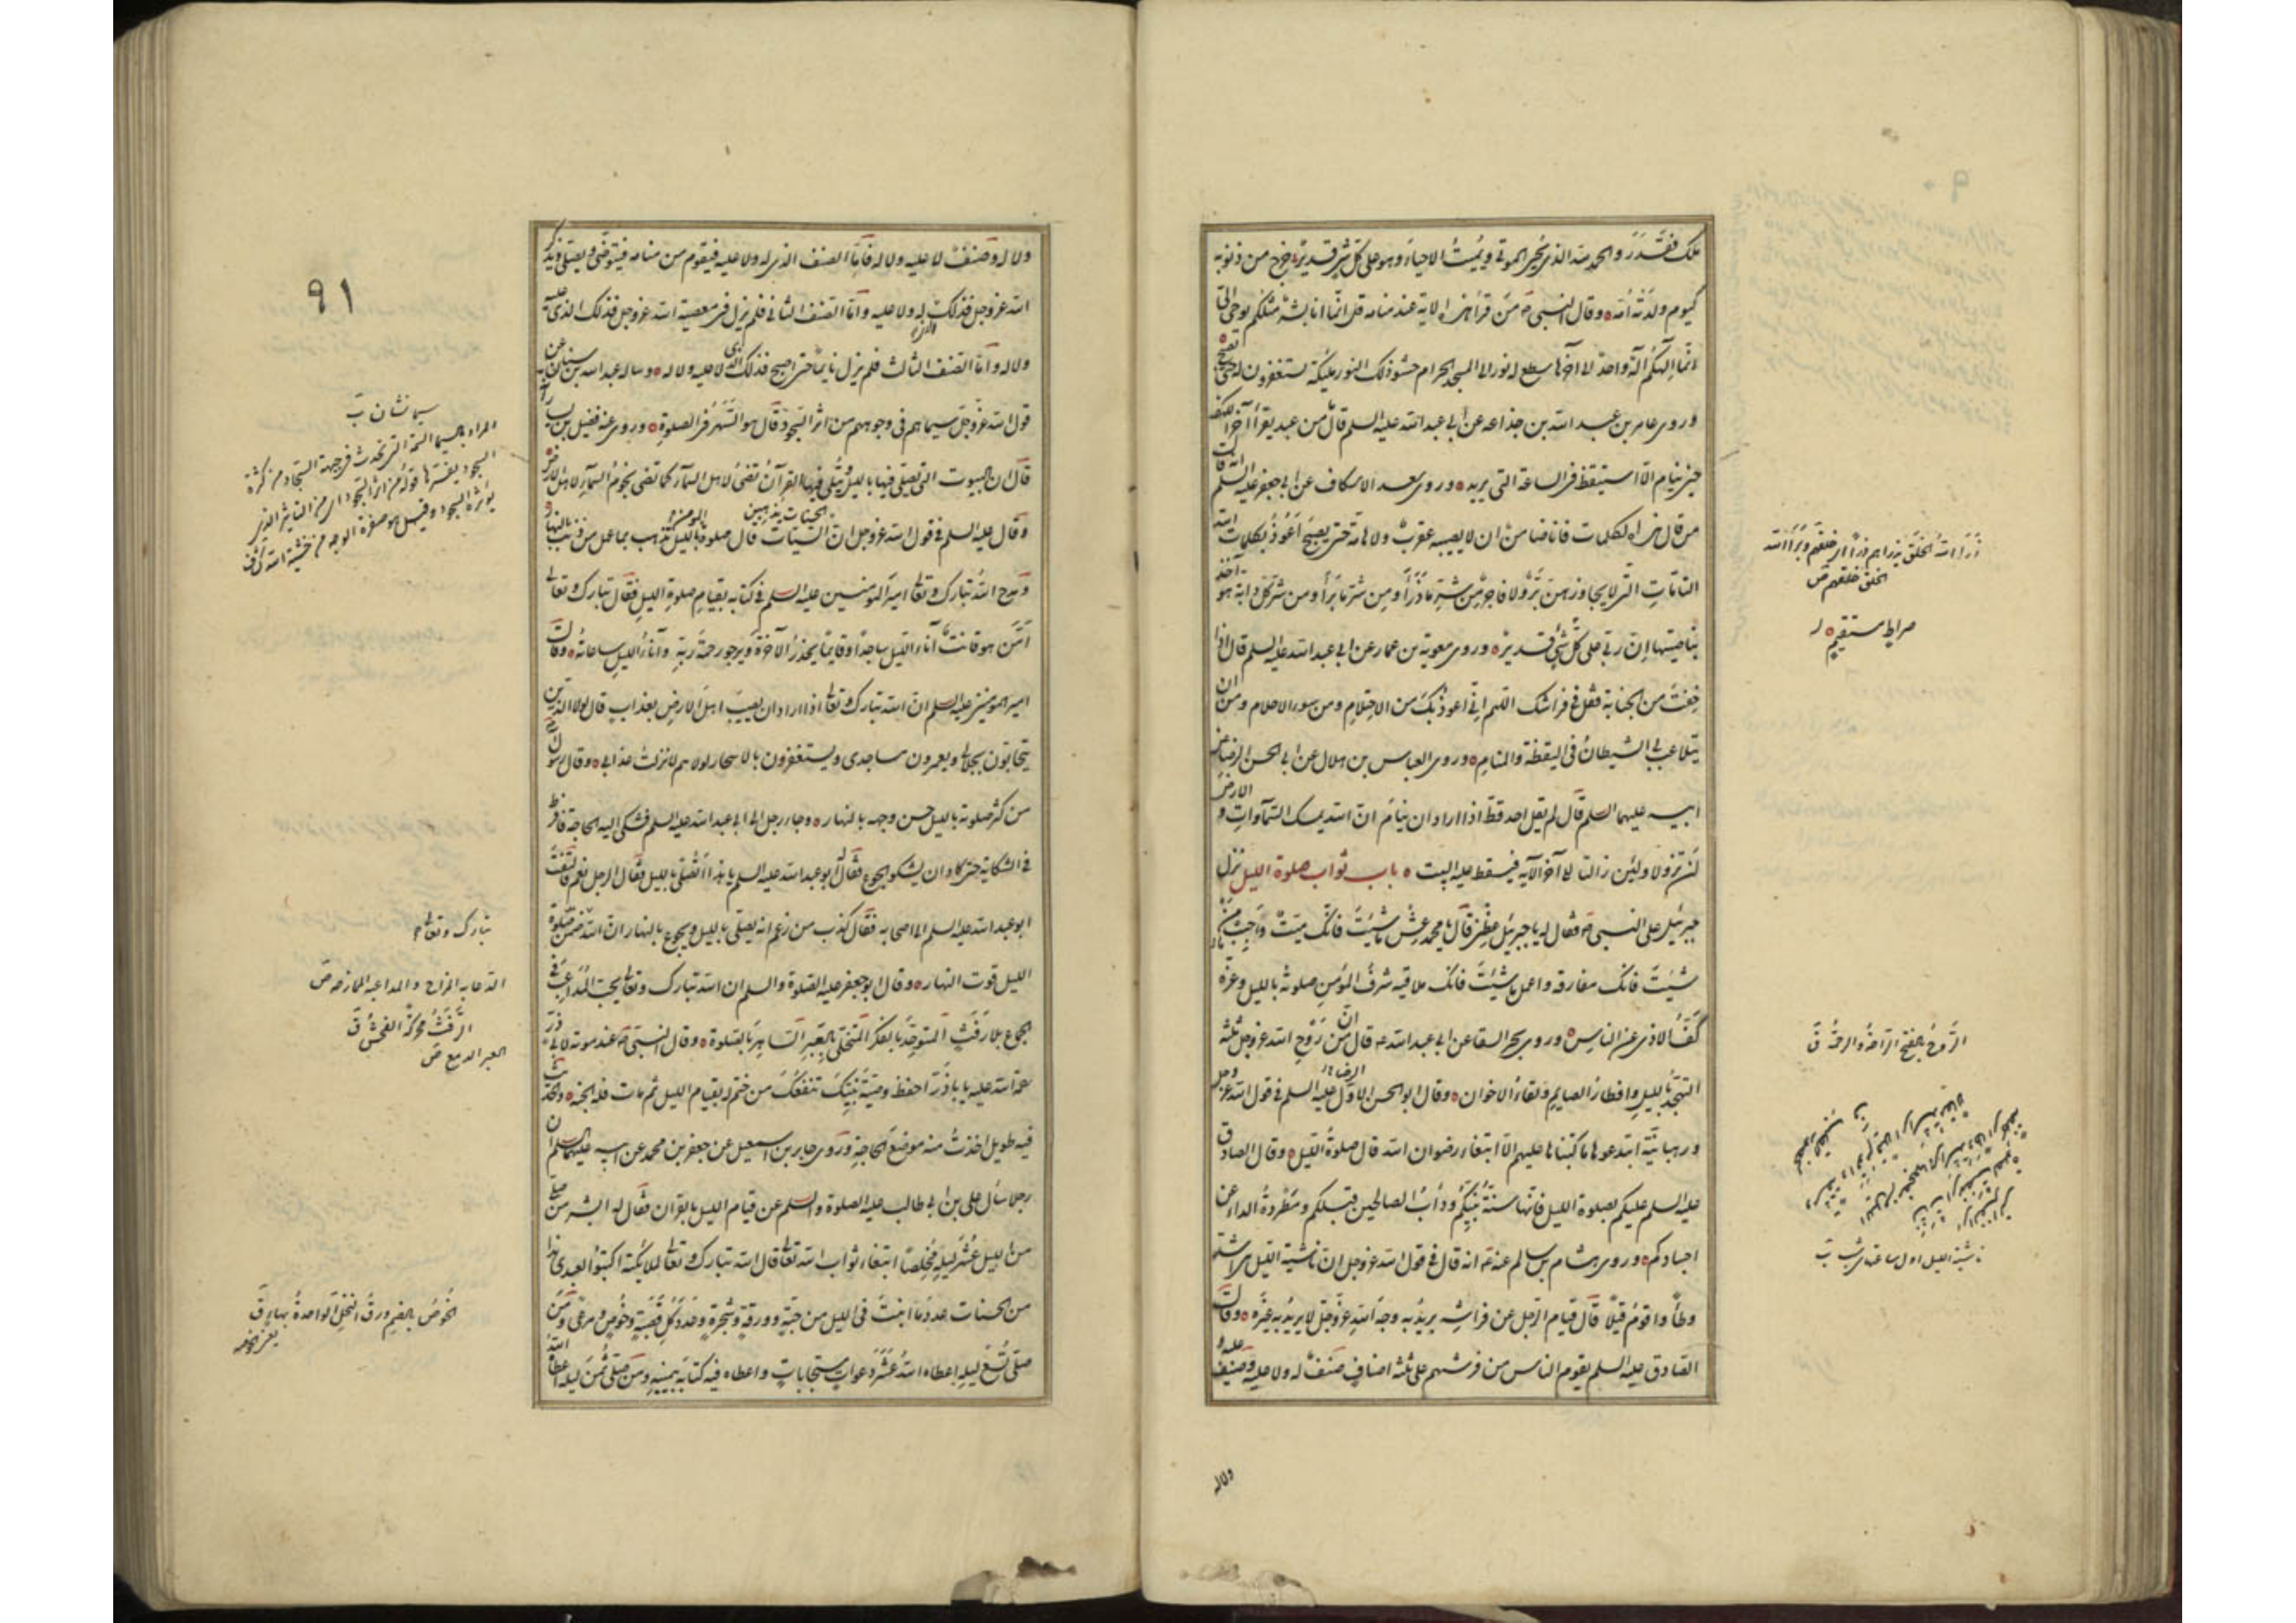 ملك فقدر والحمد لله الذي يحيي الموتى ويميت الاحياء وهو على كل شئ قدير خرج من ذنوبه
كيوم ولدته امه وقال النبي ص من قرأ هذه الاية عند منامه قل انما انا بشر مثلكم يوحى الى
انما الهكم اله واحد الى آخرها سطع له نور الى المسجد الحرام حشو ذلك النور ملئكة يستغفرون له حتى يصبح
وروى عامر بن عبد الله بن جذاعه عن ابى عبد الله عليه السلم قال ما من عبد يقرأ آخر الكهف
حين ينام الا استيقظ فى الساعة التى يريد وروى سعد الاسكاف عن ابى جعفر عليه السلم انه قال
من قال هذه الكلمات فانا ضامن ان لا يصيبه عقرب ولا هامة حتى يصبح اعوذ بكلمات الله
التامات التى لا يجاوزهن بر ولا فاجر من شر ما ذرأ ومن شر ما برأ ومن شر كل دابة هو آخذ
بناصيتها ان ربى على كل شئ قدير وروى معوية بن عمار عن ابى عبد الله عليه السلم قال اذا
خفت من الجنابة فقل فى فراشك اللهم انى اعوذ بك من الاحتلام ومن سوء الاحلام ومن ان
يتلاعب بى الشيطان فى اليقظة والمنام وروى العباس بن هلال عن ابى الحسن الرضا عن
ابيه عليهما السلم قال لم يقل احد قط اذا اراد ان ينام ان الله يمسك السموات والارض
ان تزولا ولئن زالتا الى آخر الآيه فيسقط عليه البيت باب ثواب صلوة الليل نزل
جبرئيل على النبى ص فقال له يا جبرئيل عظنى قال يا محمد عش ما شئت فانك ميت واحبب من
شئت فانك مفارقه واعمل ما شئت فانك ملاقيه شرف المؤمن صلوته بالليل وعزه
كف الاذى عن الناس وروى بحر السقا عن ابى عبد الله ع قال ان من روح الله عز وجل ثلثة
التهجد بالليل وافطار الصايم ولقاء الاخوان وقال ابو الحسن الاول عليه السلم فى قول الله عز وجل
ورهبانية ابتدعوها ما كتبناها عليهم الا ابتغاء رضوان الله قال صلوة الليل وقال الصادق
عليه السلم عليكم بصلوة الليل فانها سنة نبيكم ودأب الصالحين قبلكم ومطردة الداء عن
اجسادكم وروى هشام بن سالم عنه ع انه قال فى قول الله عز وجل ان ناشئة الليل هى اشد
وطأ واقوم قيلا قال قيام الرجل عن فراشه يريد به وجه الله عز وجل لا يريد به غيره وقال
الصادق عليه السلم يقوم الناس من فرشهم على ثلثة اصناف صنف له ولا عليه وصنف عليه
ولا له
ذرأ الله الخلق يذرأهم ذرأ اى خلقهم وبرأ الله
الخلق خلقهم ص
صراط مستقيم
الروح بالفتح الراحة والرحمة ق
ناشئة الليل اول ساعته
٩١
ولا له وصنف لا عليه ولا له فاما الصنف الذى له ولا عليه فيقوم من منامه فيتوضى ويصلى ويذكر
الله عز وجل فذلك له ولا عليه واما الصنف الثانى فلم يزل فى معصية الله عز وجل فذلك الذى عليه
ولا له واما الصنف الثالث فلم يزل نايما حتى اصبح فذلك الذى لا عليه ولا له وساله عبد الله بن سنان عن
قول الله عز وجل سيماهم فى وجوههم من اثر السجود قال هو السهر فى الصلوة وروى عنه فضيل بن يسار
قال ان البيوت التى يصلى فيها بالليل يتلى فيها القرآن تضئ لاهل السماء كما تضئ نجوم السماء لاهل الارض
وقال عليه السلم فى قول الله عز وجل ان الحسنات يذهبن السيئات قال صلوة المؤمن بالليل تذهب بما عمل من ذنب بالنهار
ومدح الله تبارك وتعالى امير المؤمنين عليه السلم فى كتابه بقيام صلوة الليل فقال تبارك وتعالى
امن هو قانت آناء الليل ساجدا وقايما يحذر الآخرة ويرجو رحمة ربه وآناء الليل ساعاته وقال
امير المؤمنين عليه السلم ان الله تبارك وتعالى اذا اراد ان يصيب اهل الارض بعذاب قال لولا الذين
يتحابون بجلالى ويعمرون مساجدى ويستغفرون بالاسحار لولاهم لانزلت عذابى وقال رسول
من كثر صلوته بالليل حسن وجهه بالنهار وجاء رجل الى ابى عبد الله عليه السلم فشكى اليه الحاجة فافرط
فى الشكاية حتى كاد ان يشكو الجوع فقال له ابو عبد الله عليه السلم يا هذا اتصلى بالليل فقال الرجل نعم فالتفت
ابو عبد الله عليه السلم الى اصحابه فقال كذب من زعم انه يصلى بالليل ويجوع بالنهار ان الله ضمن صلوة
الليل قوت النهار وقال ابو جعفر عليه الصلوة والسلم ان الله تبارك وتعالى يحب المداعب فى
الجموع بلا رفث المتوحد بالفكر المتخلى بالعبر الساهر بالصلوة وقال النبى ص عند موته لابى ذر
رحمة الله عليه يا باذر احفظ وصية نبيك تنفعك من ختم له بقيام الليل ثم مات فله الجنة والحديث
فيه طويل اخذت منه موضع الحاجة وروى جابر بن اسمعيل عن جعفر بن محمد عن ابيه عليهما السلم ان
رجلا سأل على بن ابى طالب عليه الصلوة والسلم عن قيام الليل بالقران فقال له ابشر من صلى
من الليل عشر ليلة مخلصا ابتغاء ثواب الله تعالى قال الله تبارك وتعالى لملائكته اكتبوا لعبدى هذا
من الحسنات عدد ما انبت فى الليل من حبة وورقة وشجرة وعدد كل قصبة وخوص ومرعى ومن
صلى تسع ليلة اعطاه الله عشر دعوات مستجابات واعطاه فيه كتابه بيمينه ومن صلى ثمن ليلة اعطاه الله
سيما نشان ب
المراد بالسيما السمة التى تحدث فى جبهة السجاد من كثرة
السجود يفسرها قوله من اثر السجود اى من التاثير الذى
يؤثره السجود وقيل هو صفرة الوجه من خشية الله كشف
تبارك وتعالى
الدعابه المزاح والمداعبه الممازحه ص
الرفث محركة الفحش ق
العبر الدمع ص
الخوص بالضم ورق النخل الواحدة بهاء ق